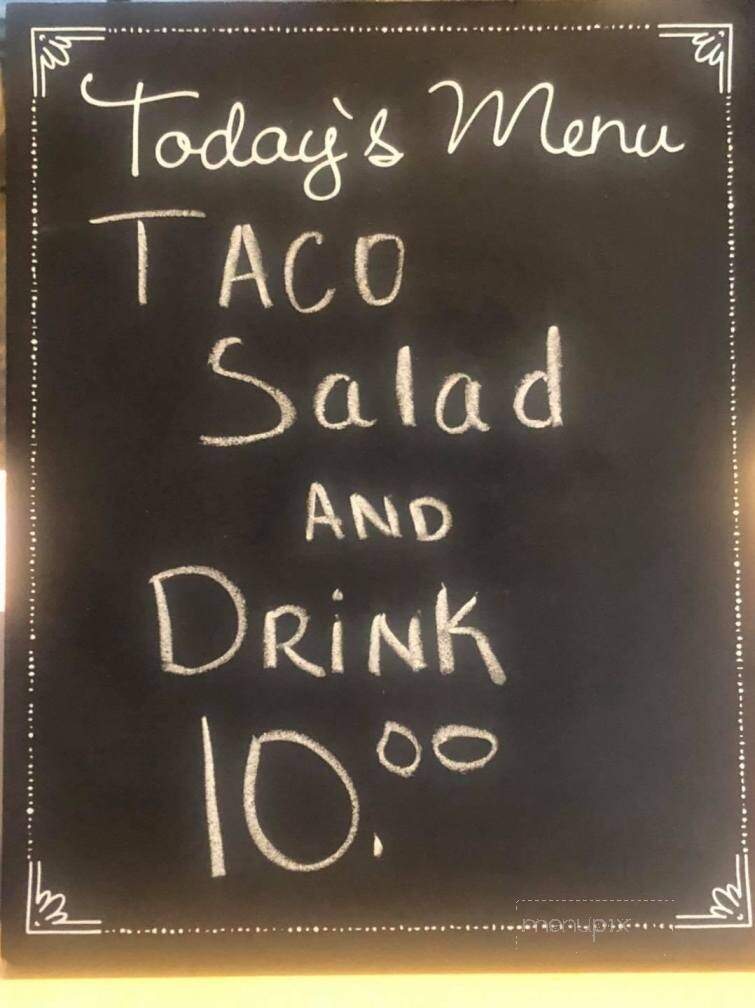 Today's Menu
TACO
Salad
AND
DRiNK
10.00
menupix